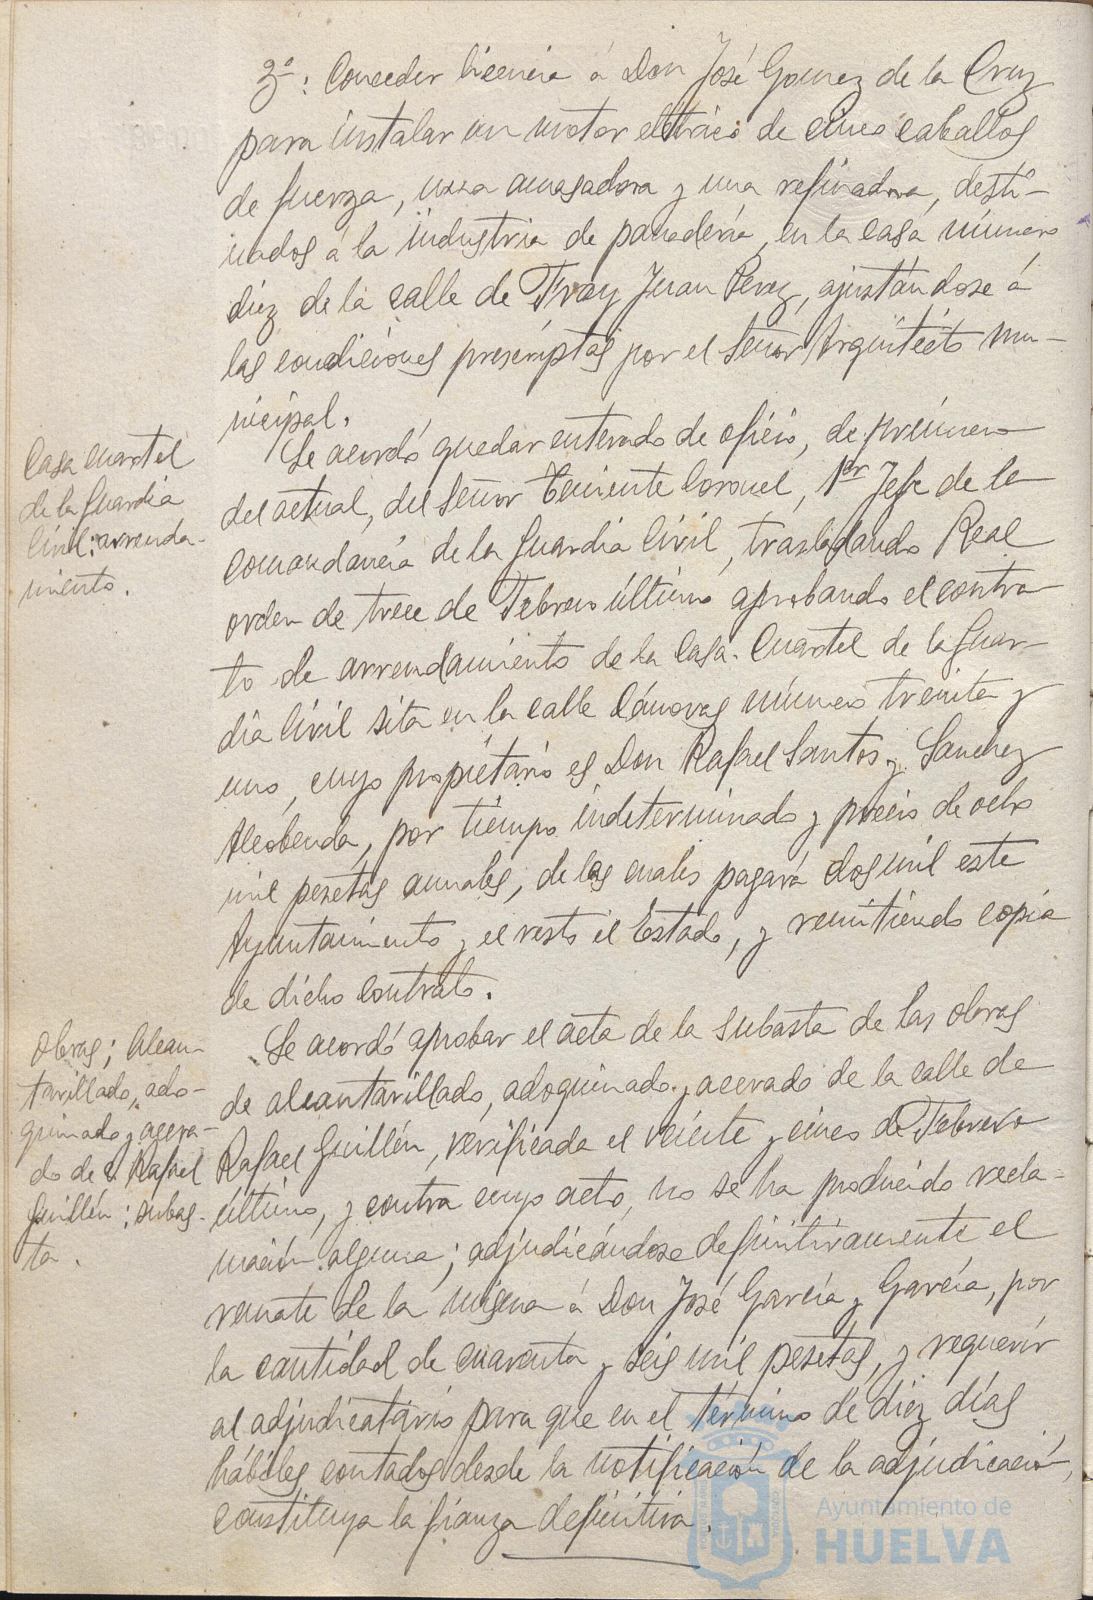 2º: Conceder licencia á Don José Gomez de la Cruz
para instalar un motor eléctrico de cinco caballos
de fuerza, una amasadora y una refinadora, desti-
nados á la industria de panadería, en la casa número
diez de la calle de Fray Juan Perez, ajustándose á
las condiciones prescriptas por el Señor Arquitecto mu-
nicipal.
Casa cuartel
de la Guardia
Civil: arrenda-
miento.
Se acordó quedar enterado de oficio, de primero
del actual, del Señor Teniente Coronel, 1er Jefe de la
Comandancia de la Guardia Civil, trasladando Real
orden de trece de Febrero último aprobando el contra-
to de arrendamiento de la Casa-Cuartel de la Guar-
dia Civil sita en la calle Cánovas número treinta y
uno, cuyo propietario es Don Rafael Santos y Sanchez
Alcobenda, por tiempo indeterminado y precio de ocho
mil pesetas anuales, de las cuales pagará dos mil este
Ayuntamiento y el resto el Estado, y remitiendo copia
de dicho contrato.
Obras; Alcan-
tarillado, ado-
quinado y acera-
do de C. Rafael
Guillén; subas-
ta.
Se acordó aprobar el acta de la subasta de las obras
de alcantarillado, adoquinado y acerado de la calle de
Rafael Guillén, verificada el veinte y cinco de Febrero
último, y contra cuyo acto, no se ha producido recla-
mación alguna; adjudicándose definitivamente el
remate de la misma á Don José García y García, por
la cantidad de cuarenta y seis mil pesetas, y requerir
al adjudicatario para que en el término de diez días
hábiles, contados desde la notificación de la adjudicación,
constituya la fianza definitiva.
Ayuntamiento de
HUELVA